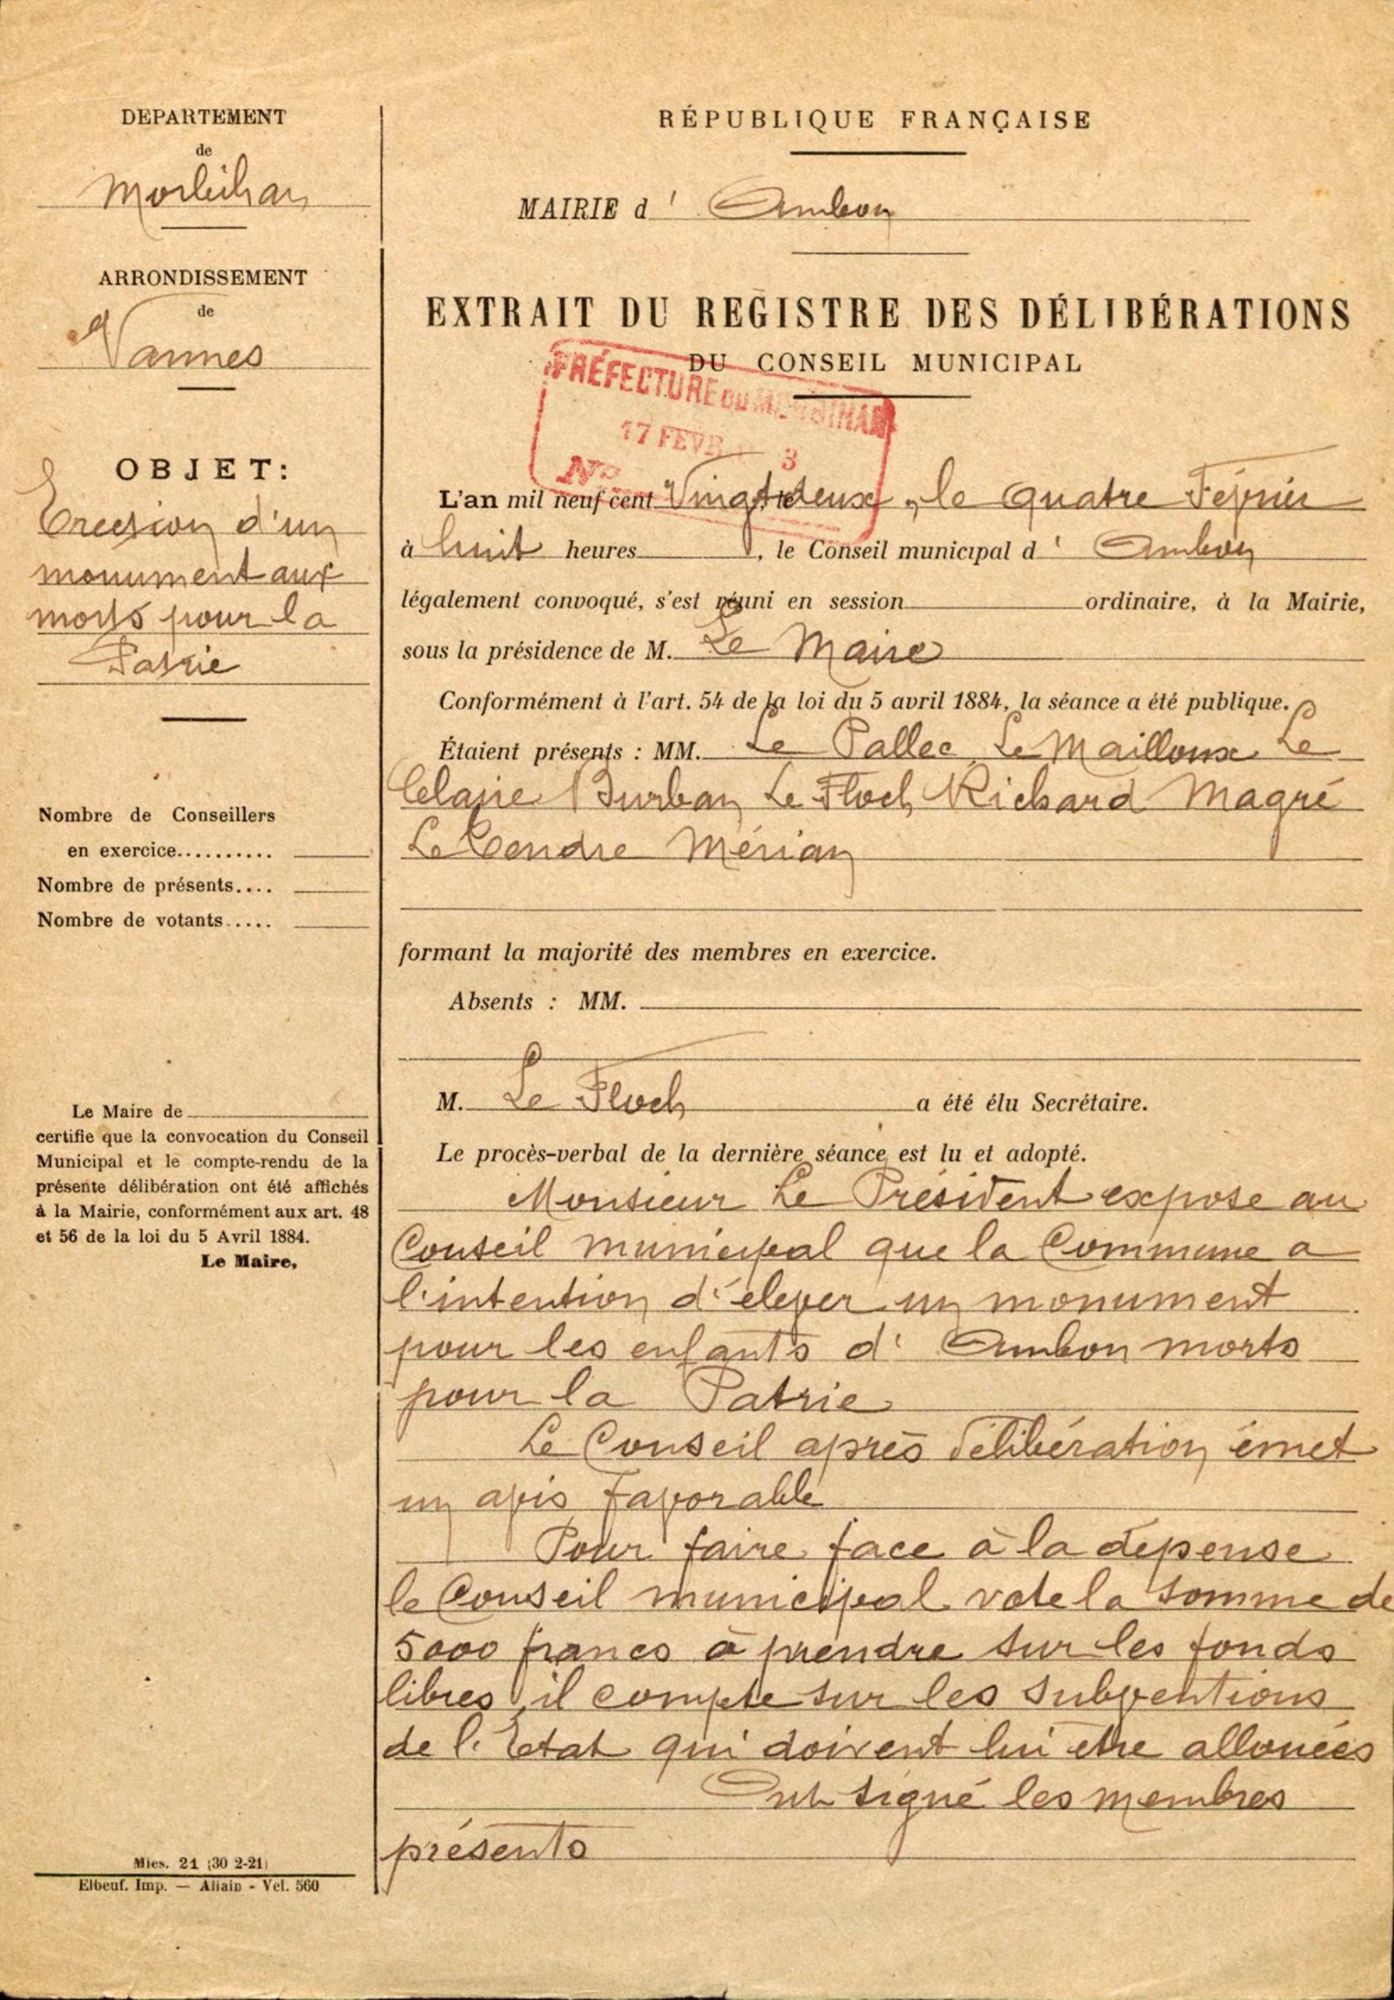 DEPARTEMENT
de
Morbihan
ARRONDISSEMENT
de
Vannes
OBJET:
Erection d'un
monument aux
morts pour la
Patrie
Nombre de Conseillers
en exercice..........
Nombre de présents....
Nombre de votants.....
Le Maire de
certifie que la convocation du Conseil
Municipal et le compte-rendu de la
présente délibération ont été affichés
à la Mairie, conformément aux art. 48
et 56 de la loi du 5 Avril 1884.
Le Maire,
Mies. 21 (30 2-21)
Elbeuf. Imp. — Allain - Vel. 560
RÉPUBLIQUE FRANÇAISE
MAIRIE d' Ambon
EXTRAIT DU REGISTRE DES DÉLIBÉRATIONS
DU CONSEIL MUNICIPAL
PRÉFECTURE DU MORBIHAN
17 FEVR 3
N°
L'an mil neuf cent Vingt deux, le quatre Février
à huit heures, le Conseil municipal d' Ambon
légalement convoqué, s'est réuni en session ordinaire, à la Mairie,
sous la présidence de M. Le Maire
Conformément à l'art. 54 de la loi du 5 avril 1884, la séance a été publique.
Étaient présents : MM. Le Pallec, Le Mailloux Le
Claire Burban Le Floch Richard Magré
Le Cendre Mérian
formant la majorité des membres en exercice.
Absents : MM.
M. Le Floch a été élu Secrétaire.
Le procès-verbal de la dernière séance est lu et adopté.
Monsieur Le Président expose au
Conseil municipal que la Commune a
l'intention d'élever un monument
pour les enfants d' Ambon morts
pour la Patrie
Le Conseil après délibération émet
un avis favorable
Pour faire face à la dépense
le Conseil municipal vote la somme de
5000 francs à prendre sur les fonds
libres, il compte sur les subventions
de l'Etat qui doivent lui être allouées
Ont signé les membres
présents